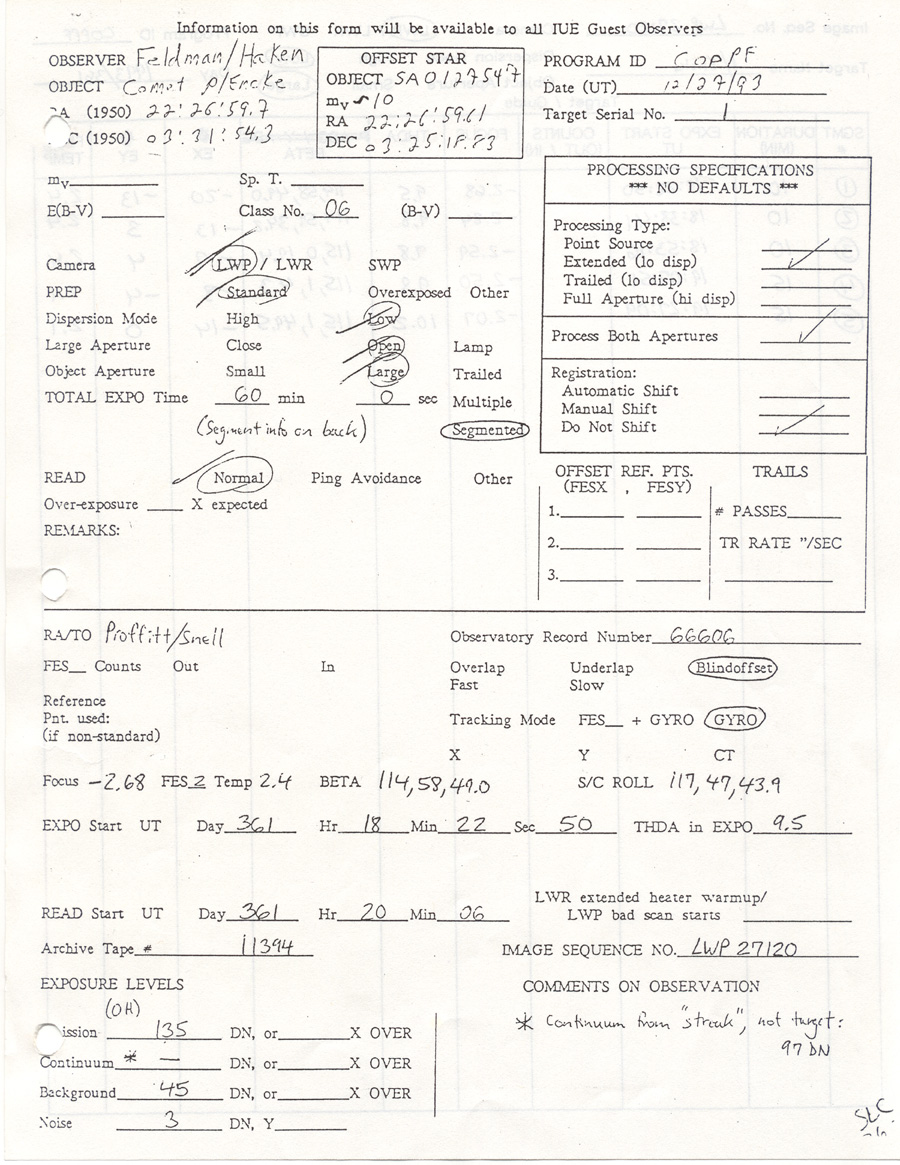 Information on this form will be available to all IUE Guest Observers
OBSERVER Feldman/Haken
OBJECT Comet P/Encke
RA (1950) 22:26:59.7
C (1950) 03:31:54.3
OFFSET STAR
OBJECT SAO 127547
mv ~10
RA 22:26:59.61
DEC 03:25:18.83
PROGRAM ID COPPF
Date (UT) 12/27/93
Target Serial No. 1
mv Sp. T.
E(B-V) Class No. 06 (B-V)
PROCESSING SPECIFICATIONS
*** NO DEFAULTS ***
Processing Type:
Point Source
Extended (lo disp)
Trailed (lo disp)
Full Aperture (hi disp)
Process Both Apertures
Registration:
Automatic Shift
Manual Shift
Do Not Shift
Camera LWP / LWR SWP
PREP Standard Overexposed Other
Dispersion Mode High Low
Large Aperture Close Open Lamp
Object Aperture Small Large Trailed
TOTAL EXPO Time 60 min 0 sec Multiple
(Segment info on back) Segmented
READ Normal Ping Avoidance Other
Over-exposure X expected
REMARKS:
OFFSET REF. PTS.
(FESX , FESY)
1.
2.
3.
TRAILS
# PASSES
TR RATE "/SEC
RA/TO Proffitt/Snell Observatory Record Number 66606
FES Counts Out In Overlap Underlap Blindoffset
Fast Slow
Reference
Pnt. used:
(if non-standard)
Tracking Mode FES + GYRO GYRO
X Y CT
Focus -2.68 FES 2 Temp 2.4 BETA 114,58,49.0 S/C ROLL 117,47,43.9
EXPO Start UT Day 361 Hr 18 Min 22 Sec 50 THDA in EXPO 9.5
LWR extended heater warmup/
READ Start UT Day 361 Hr 20 Min 06 LWP bad scan starts
Archive Tape # 11394 IMAGE SEQUENCE NO. LWP 27120
EXPOSURE LEVELS
(OH)
ission 135 DN, or X OVER
Continuum * — DN, or X OVER
Background 45 DN, or X OVER
Noise 3 DN, Y
COMMENTS ON OBSERVATION
* Continuum from "streak", not target:
97 DN